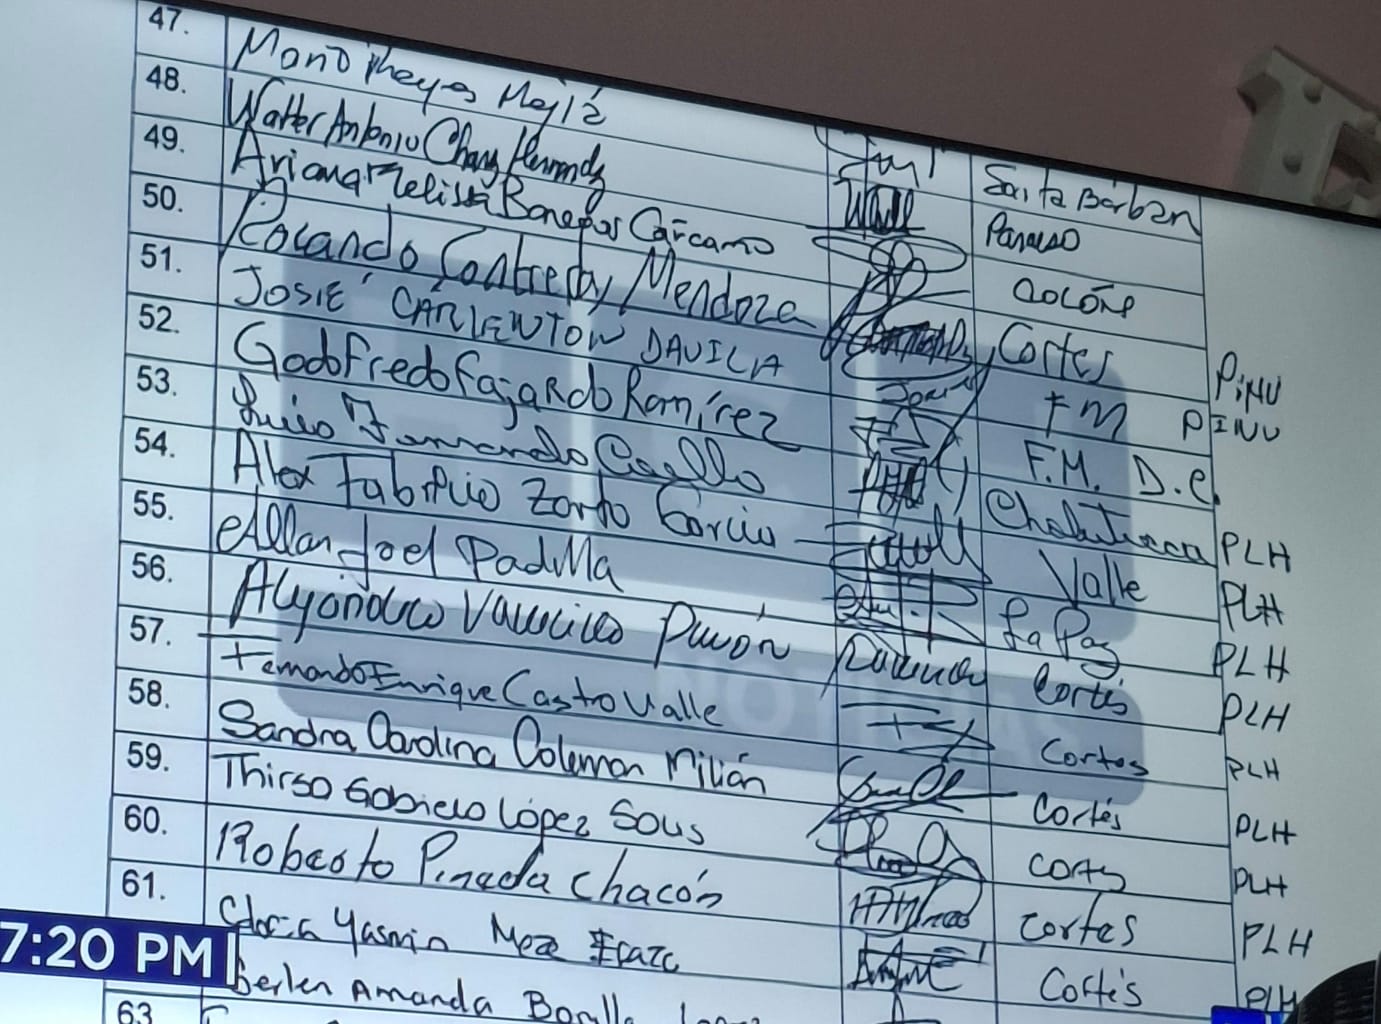 47. Mario Reyes Mejía Santa Bárbara
48. Walter Antonio Chang Hernandz Paraiso
49. Ariana Melissa Banegas Cárcamo Colón
50. Rolando Contreras Mendoza Cortes PiNU
51. JOSIE CARLENTON DAVILA FM PINU
52. Godofredo Fajardo Ramírez F.M. D.C.
53. Luis Fernando Coello Choluteca PLH
54. Alex Fabricio Zorto García Valle PLH
55. Allan Joel Padilla La Paz PLH
56. Pavón Cortés PLH
57. Fernando Enrique Castro Valle Cortes PLH
58. Sandra Carolina Coleman Milián Cortés PLH
59. Thirso López Cortes PLH
60. Roberto Pineda Chacón Cortes PLH
61. Yasmin Cortés PLH
Amanda
63
7:20 PM